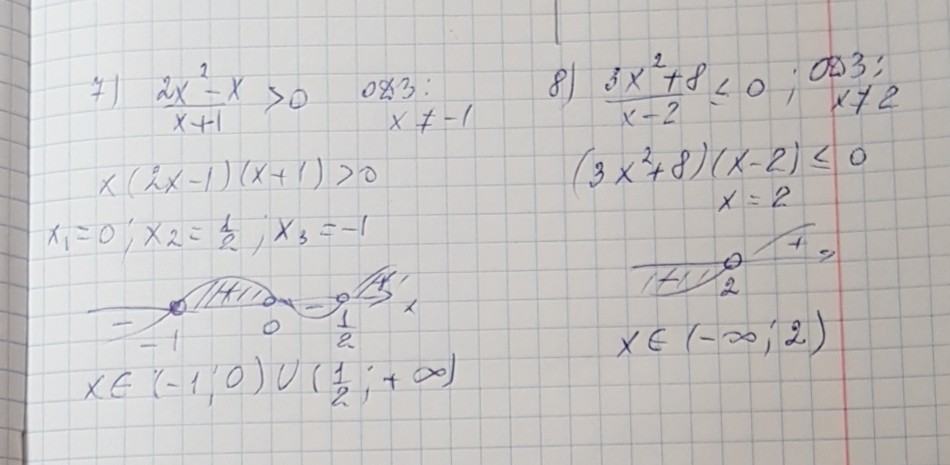 7) (2x² - x)/(x+1) > 0 ОДЗ: x ≠ -1
x(2x-1)(x+1) > 0
x₁ = 0; x₂ = 1/2; x₃ = -1
- + - + x
-1 0 1/2
x ∈ (-1; 0) ∪ (1/2; +∞)
8) (3x² + 8)/(x-2) ≤ 0; ОДЗ: x ≠ 2
(3x² + 8)(x-2) ≤ 0
x = 2
+
2
x ∈ (-∞; 2)